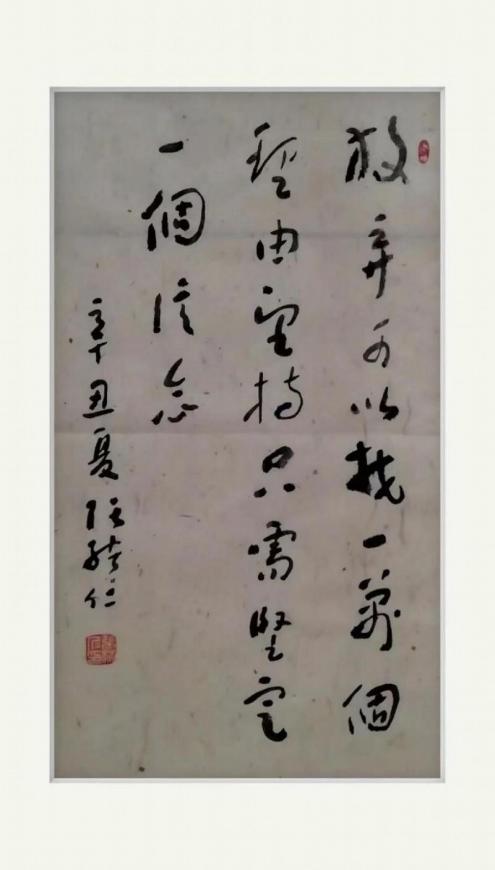 放弃可以找一萬個
理由坚持只需坚定
一個信念
辛丑夏